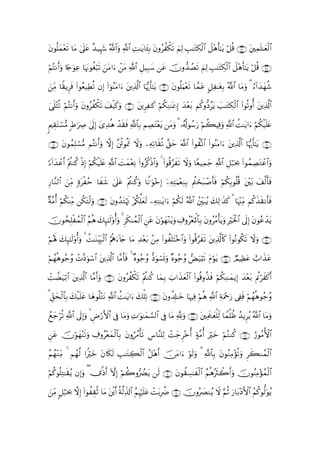 ٱلْعَٰلَمِينَ ۝ قُلْ يَٰٓأَهْلَ ٱلْكِتَٰبِ لِمَ تَكْفُرُونَ بِـَٔايَٰتِ ٱللَّهِ وَٱللَّهُ شَهِيدٌ عَلَىٰ مَا تَعْمَلُونَ
۝ قُلْ يَٰٓأَهْلَ ٱلْكِتَٰبِ لِمَ تَصُدُّونَ عَن سَبِيلِ ٱللَّهِ مَنْ ءَامَنَ تَبْغُونَهَا عِوَجًا وَأَنتُمْ
شُهَدَآءُ ۗ وَمَا ٱللَّهُ بِغَٰفِلٍ عَمَّا تَعْمَلُونَ ۝ يَٰٓأَيُّهَا ٱلَّذِينَ ءَامَنُوٓا۟ إِن تُطِيعُوا۟ فَرِيقًا مِّنَ
ٱلَّذِينَ أُوتُوا۟ ٱلْكِتَٰبَ يَرُدُّوكُم بَعْدَ إِيمَٰنِكُمْ كَٰفِرِينَ ۝ وَكَيْفَ تَكْفُرُونَ وَأَنتُمْ تُتْلَىٰ
عَلَيْكُمْ ءَايَٰتُ ٱللَّهِ وَفِيكُمْ رَسُولُهُۥ ۗ وَمَن يَعْتَصِم بِٱللَّهِ فَقَدْ هُدِىَ إِلَىٰ صِرَٰطٍ مُّسْتَقِيمٍ
۝ يَٰٓأَيُّهَا ٱلَّذِينَ ءَامَنُوا۟ ٱتَّقُوا۟ ٱللَّهَ حَقَّ تُقَاتِهِۦ وَلَا تَمُوتُنَّ إِلَّا وَأَنتُم مُّسْلِمُونَ ۝
وَٱعْتَصِمُوا۟ بِحَبْلِ ٱللَّهِ جَمِيعًا وَلَا تَفَرَّقُوا۟ ۚ وَٱذْكُرُوا۟ نِعْمَتَ ٱللَّهِ عَلَيْكُمْ إِذْ كُنتُمْ أَعْدَآءً
فَأَلَّفَ بَيْنَ قُلُوبِكُمْ فَأَصْبَحْتُم بِنِعْمَتِهِۦٓ إِخْوَٰنًا وَكُنتُمْ عَلَىٰ شَفَا حُفْرَةٍ مِّنَ ٱلنَّارِ
فَأَنقَذَكُم مِّنْهَا ۗ كَذَٰلِكَ يُبَيِّنُ ٱللَّهُ لَكُمْ ءَايَٰتِهِۦ لَعَلَّكُمْ تَهْتَدُونَ ۝ وَلْتَكُن مِّنكُمْ أُمَّةٌ
يَدْعُونَ إِلَى ٱلْخَيْرِ وَيَأْمُرُونَ بِٱلْمَعْرُوفِ وَيَنْهَوْنَ عَنِ ٱلْمُنكَرِ ۚ وَأُو۟لَٰٓئِكَ هُمُ ٱلْمُفْلِحُونَ
۝ وَلَا تَكُونُوا۟ كَٱلَّذِينَ تَفَرَّقُوا۟ وَٱخْتَلَفُوا۟ مِنۢ بَعْدِ مَا جَآءَهُمُ ٱلْبَيِّنَٰتُ ۚ وَأُو۟لَٰٓئِكَ لَهُمْ
عَذَابٌ عَظِيمٌ ۝ يَوْمَ تَبْيَضُّ وُجُوهٌ وَتَسْوَدُّ وُجُوهٌ ۚ فَأَمَّا ٱلَّذِينَ ٱسْوَدَّتْ وُجُوهُهُمْ
أَكَفَرْتُم بَعْدَ إِيمَٰنِكُمْ فَذُوقُوا۟ ٱلْعَذَابَ بِمَا كُنتُمْ تَكْفُرُونَ ۝ وَأَمَّا ٱلَّذِينَ ٱبْيَضَّتْ
وُجُوهُهُمْ فَفِى رَحْمَةِ ٱللَّهِ هُمْ فِيهَا خَٰلِدُونَ ۝ تِلْكَ ءَايَٰتُ ٱللَّهِ نَتْلُوهَا عَلَيْكَ بِٱلْحَقِّ ۗ
وَمَا ٱللَّهُ يُرِيدُ ظُلْمًا لِّلْعَٰلَمِينَ ۝ وَلِلَّهِ مَا فِى ٱلسَّمَٰوَٰتِ وَمَا فِى ٱلْأَرْضِ ۚ وَإِلَى ٱللَّهِ تُرْجَعُ
ٱلْأُمُورُ ۝ كُنتُمْ خَيْرَ أُمَّةٍ أُخْرِجَتْ لِلنَّاسِ تَأْمُرُونَ بِٱلْمَعْرُوفِ وَتَنْهَوْنَ عَنِ
ٱلْمُنكَرِ وَتُؤْمِنُونَ بِٱللَّهِ ۗ وَلَوْ ءَامَنَ أَهْلُ ٱلْكِتَٰبِ لَكَانَ خَيْرًا لَّهُم ۚ مِّنْهُمُ
ٱلْمُؤْمِنُونَ وَأَكْثَرُهُمُ ٱلْفَٰسِقُونَ ۝ لَن يَضُرُّوكُمْ إِلَّآ أَذًى ۖ وَإِن يُقَٰتِلُوكُمْ
يُوَلُّوكُمُ ٱلْأَدْبَارَ ثُمَّ لَا يُنصَرُونَ ۝ ضُرِبَتْ عَلَيْهِمُ ٱلذِّلَّةُ أَيْنَ مَا ثُقِفُوٓا۟ إِلَّا بِحَبْلٍ مِّنَ